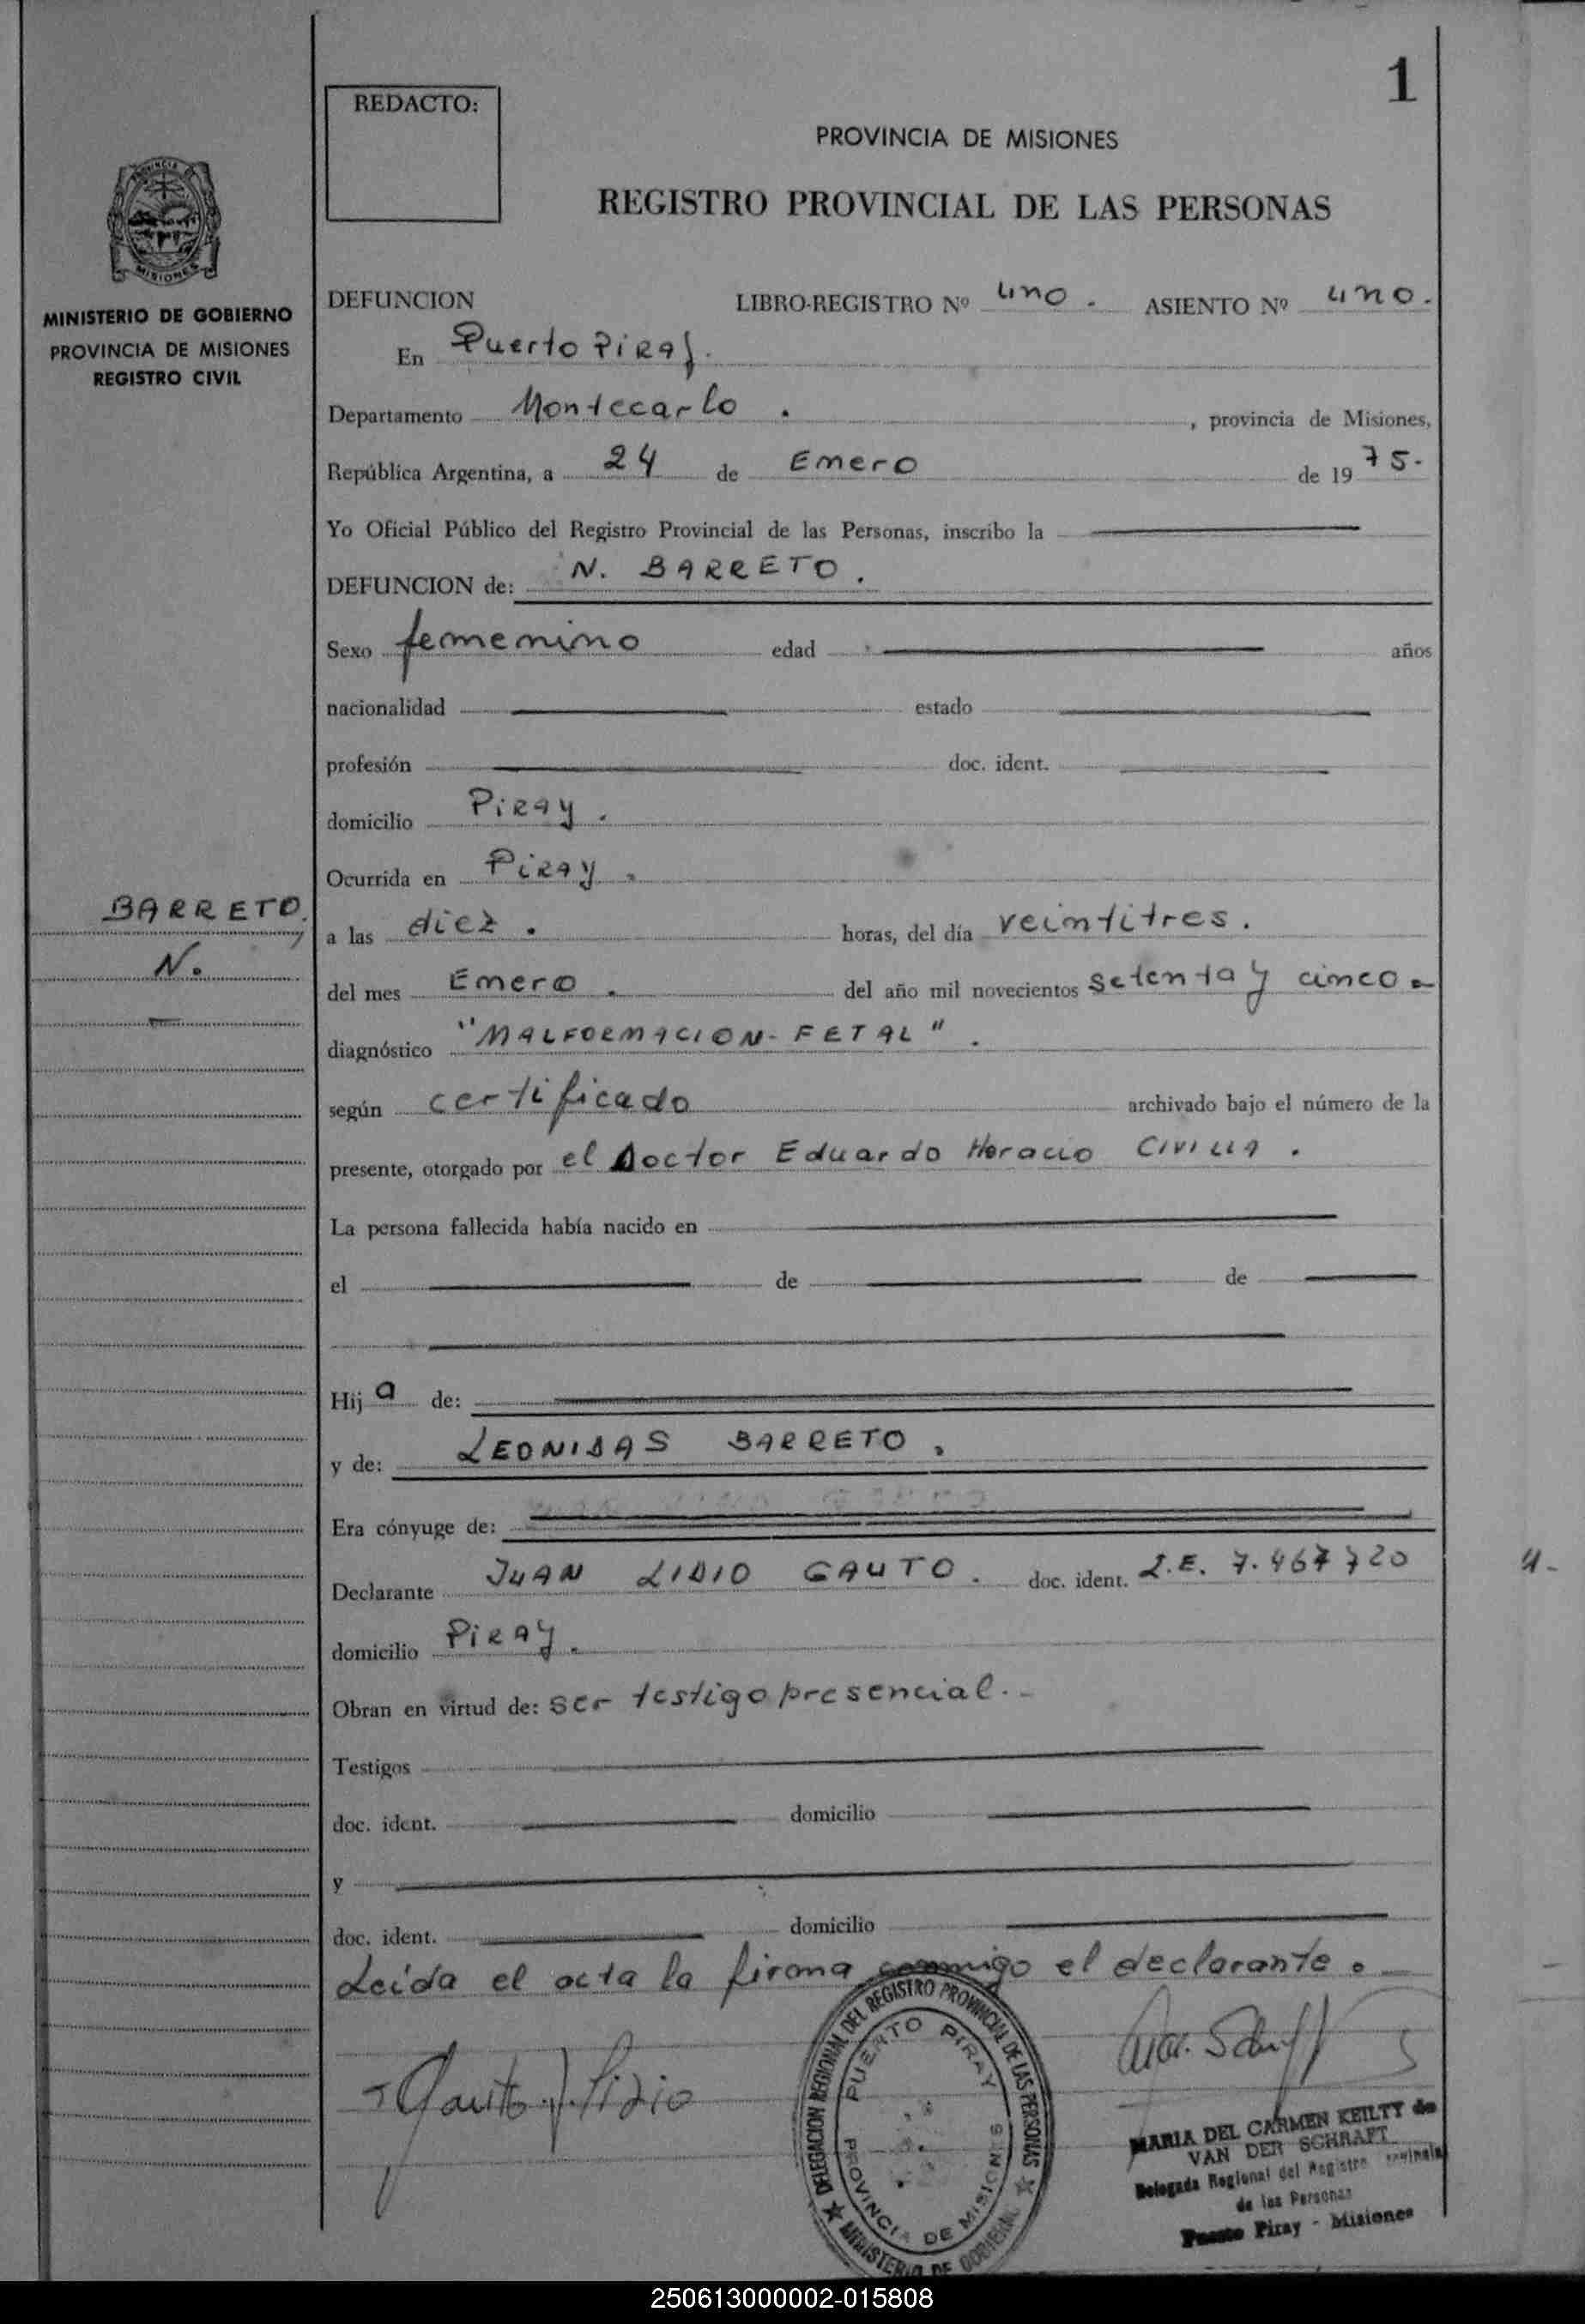 1
REDACTO:
PROVINCIA DE MISIONES
REGISTRO PROVINCIAL DE LAS PERSONAS
PROVINCIA DE
MISIONES
MINISTERIO DE GOBIERNO
PROVINCIA DE MISIONES
REGISTRO CIVIL
DEFUNCION LIBRO-REGISTRO Nº uno. ASIENTO Nº uno.
En Puerto Piray.
Departamento Montecarlo. , provincia de Misiones,
República Argentina, a 24 de Enero de 1975.
Yo Oficial Público del Registro Provincial de las Personas, inscribo la
DEFUNCION de: N. BARRETO.
Sexo femenino edad años
nacionalidad estado
profesión doc. ident.
domicilio Piray.
Ocurrida en Piray.
BARRETO,
N.
a las diez. horas, del día veintitres.
del mes Enero. del año mil novecientos setenta y cinco
diagnóstico "MALFORMACION-FETAL".
según certificado archivado bajo el número de la
presente, otorgado por el Doctor Eduardo Horacio CIVILLA.
La persona fallecida había nacido en
el de de
Hija de:
y de: LEONIDAS BARRETO.
Era cónyuge de:
Declarante JUAN LIDIO GAUTO. doc. ident. L.E. 7.467720
domicilio Piray.
Obran en virtud de: ser testigo presencial.-
Testigos
doc. ident. domicilio
y
doc. ident. domicilio
Leída el acta la firma conmigo el declarante.
Gauto J. Lidio
DELEGACION REGIONAL DEL REGISTRO PROVINCIAL DE LAS PERSONAS
PUERTO PIRAY
PROVINCIA DE MISIONES
MINISTERIO DE GOBIERNO
MARIA DEL CARMEN KEILTY de
VAN DER SCHRAFT
Delegada Regional del Registro
de las Personas
Puerto Piray - Misiones
250613000002-015808